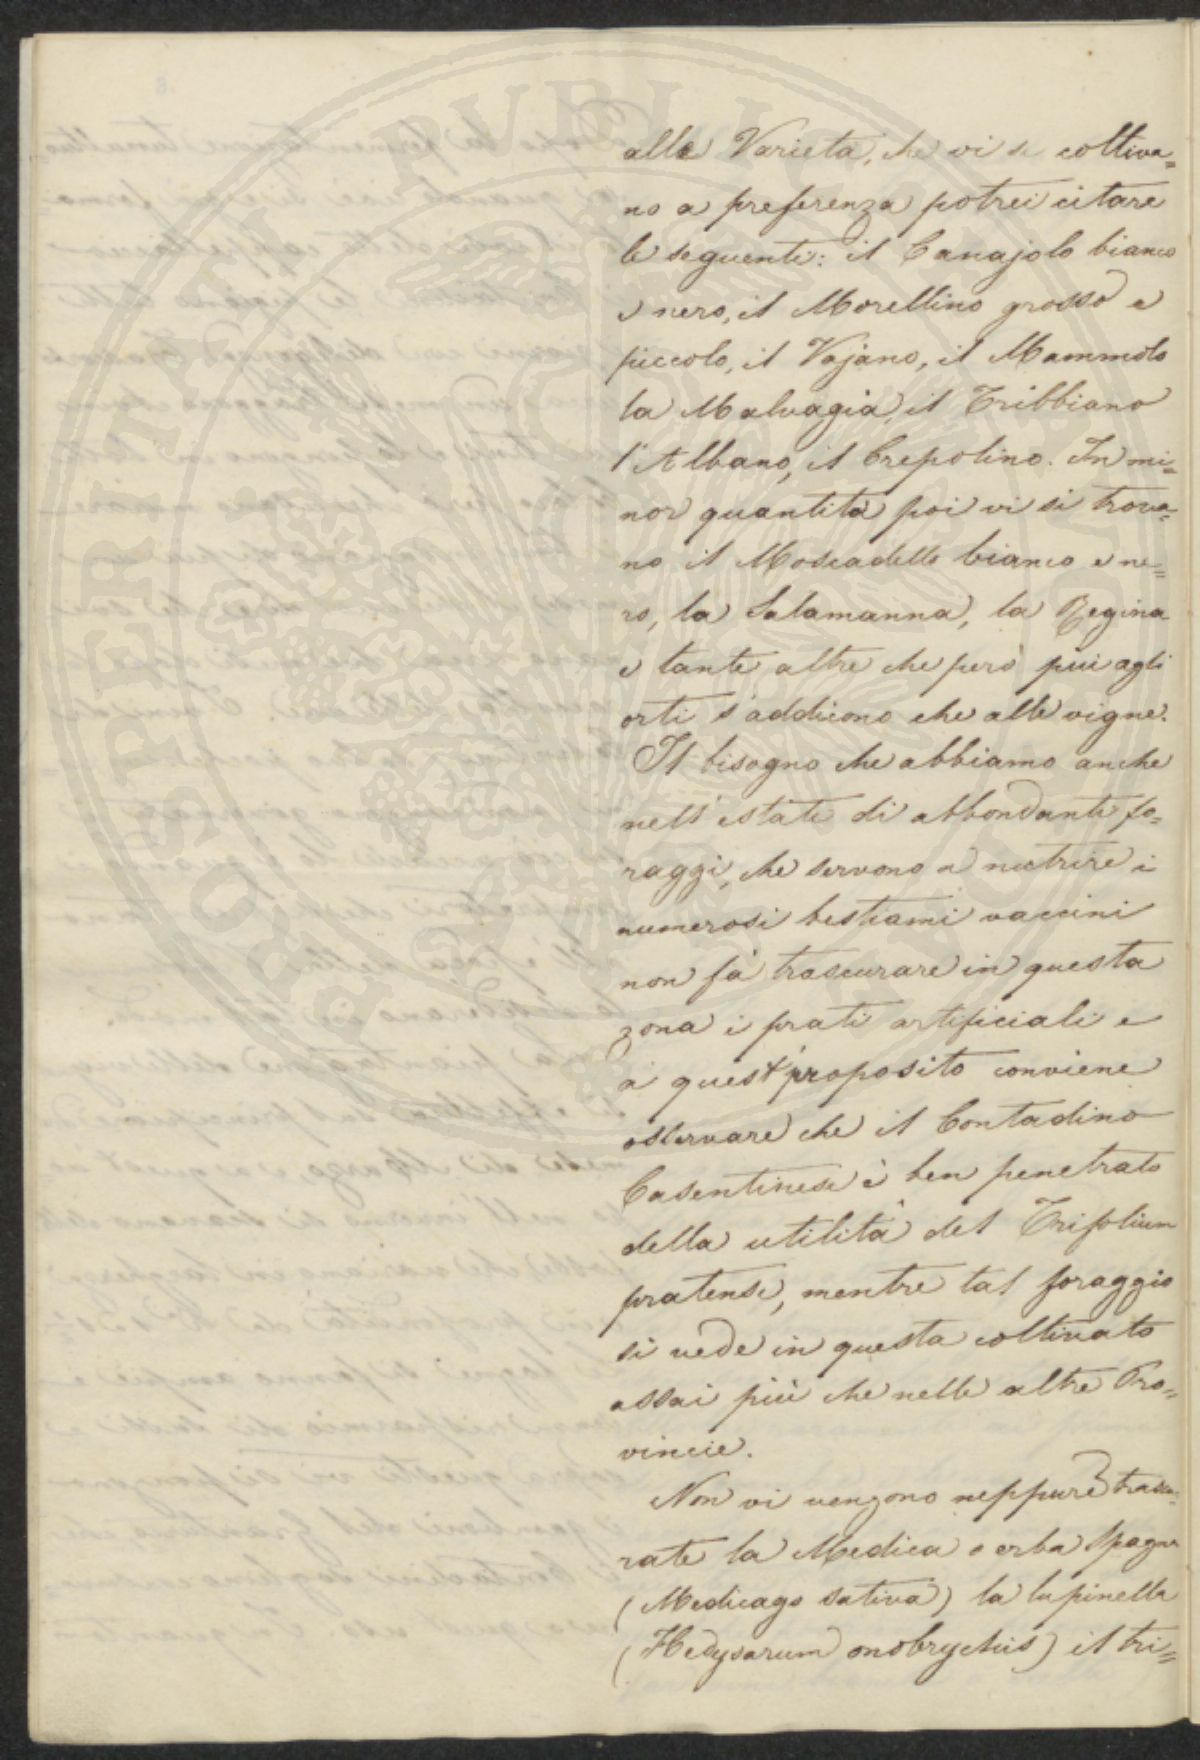 alle Varietà, che vi si coltiva=
no a preferenza potrei citare
le seguenti: il Canajolo bianco
e nero, il Morellino grosso e
piccolo, il Vajano, il Mammolo
la Malvagia, il Tribbiano
l'Albano, il Crepolino. In mi=
nor quantità poi vi si trova=
no il Moscadello bianco e ne=
ro, la Salamanna, la Regina
e tante altre che però più agli
orti s'addicono che alle vigne.
Il bisogno che abbiamo anche
nell'estate di abbondanti fo=
raggi, che servono a nutrire i
numerosi bestiami vaccini
non fà trascurare in questa
zona i prati artificiali e
a quest proposito conviene
osservare che il Contadino
Casentinese è ben penetrato
della utilità del Trifolium
pratense, mentre tal foraggio
si vede in questa coltivato
assai più che nelle altre Pro=
vincie.
Non vi vengono neppure trascu=
rate la Medica o erba Spagna
(Medicago sativa) la lupinella
(Hedysarum onobrychis) il tri=
PROSPERITATI PUBLICAE